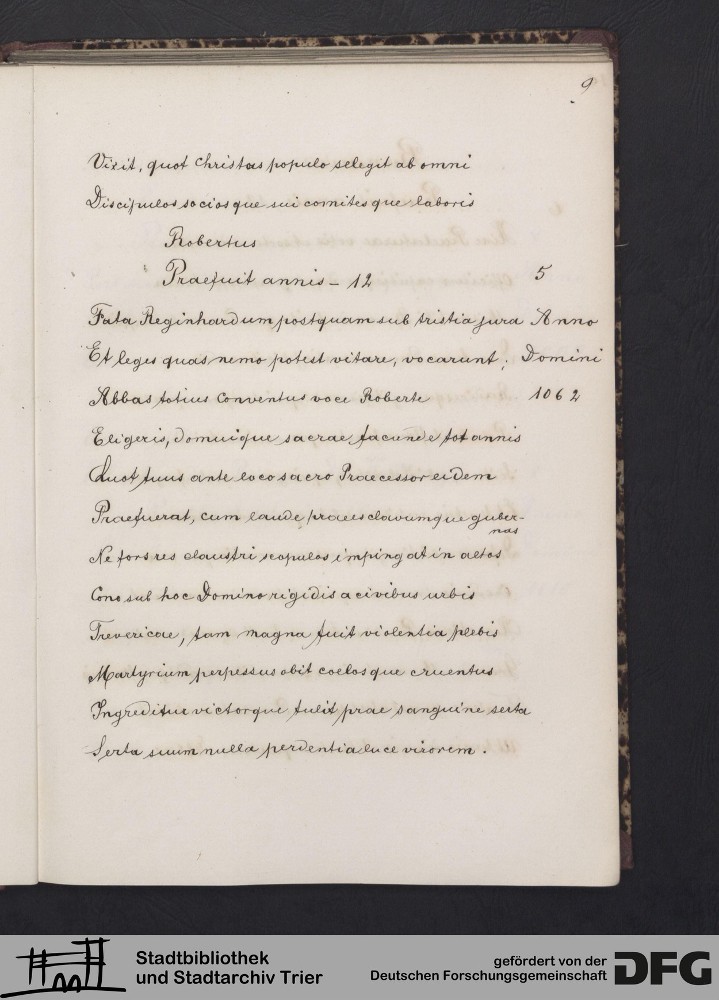 9
Vixit, quot Christus populo selegit ab omni
Discipulos sociosque sui comitesque laboris
Robertus
Praefuit annis – 12
5
Fata Reginhardum postquam sub tristia jura Anno
Et leges quas nemo potest vitare, vocarunt, Domini
Abbas totius conventus voce Roberte 1062
Eligeris, domuique sacrae facunde tot annis
Quot tuus ante loco sacro Praecessor eidem
Praefuerat, cum laude praees clavumque guber-
nas
Ne fors res claustri scopulos impingat in altos
Cono sub hoc Domino rigidis a civibus urbis
Trevericae, tam magna fuit violentia plebis
Martyrium perpessus obit coelosque cruentus
Ingreditur victorque tulit prae sanguine serta
Serta suum nulla perdentia luce virorem.
Stadtbibliothek
und Stadtarchiv Trier
gefördert von der
Deutschen Forschungsgemeinschaft
DFG